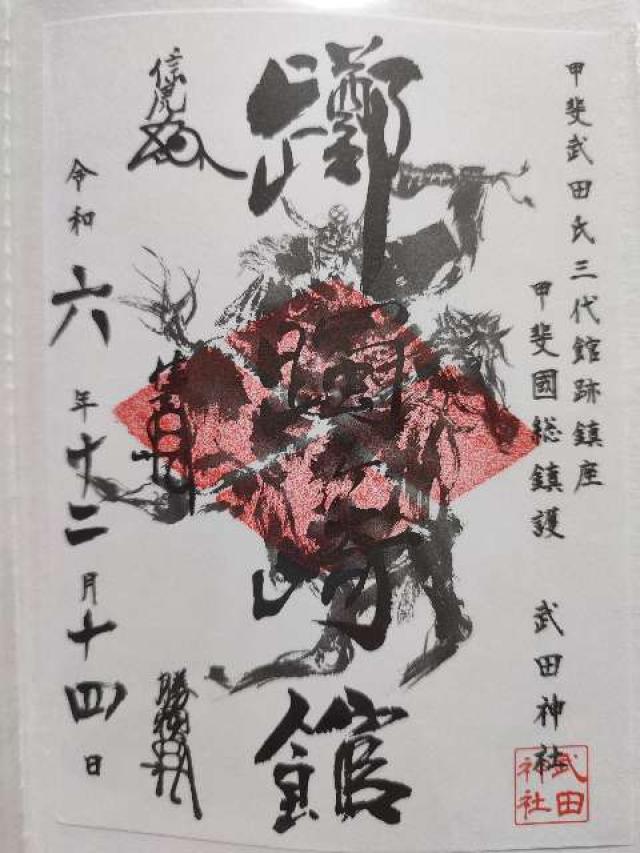 甲斐武田氏三代館跡鎮座
甲斐國総鎮護 武田神社
躑躅ヶ崎館
信虎
信玄
勝頼
令和六年十二月十四日
武田
神社